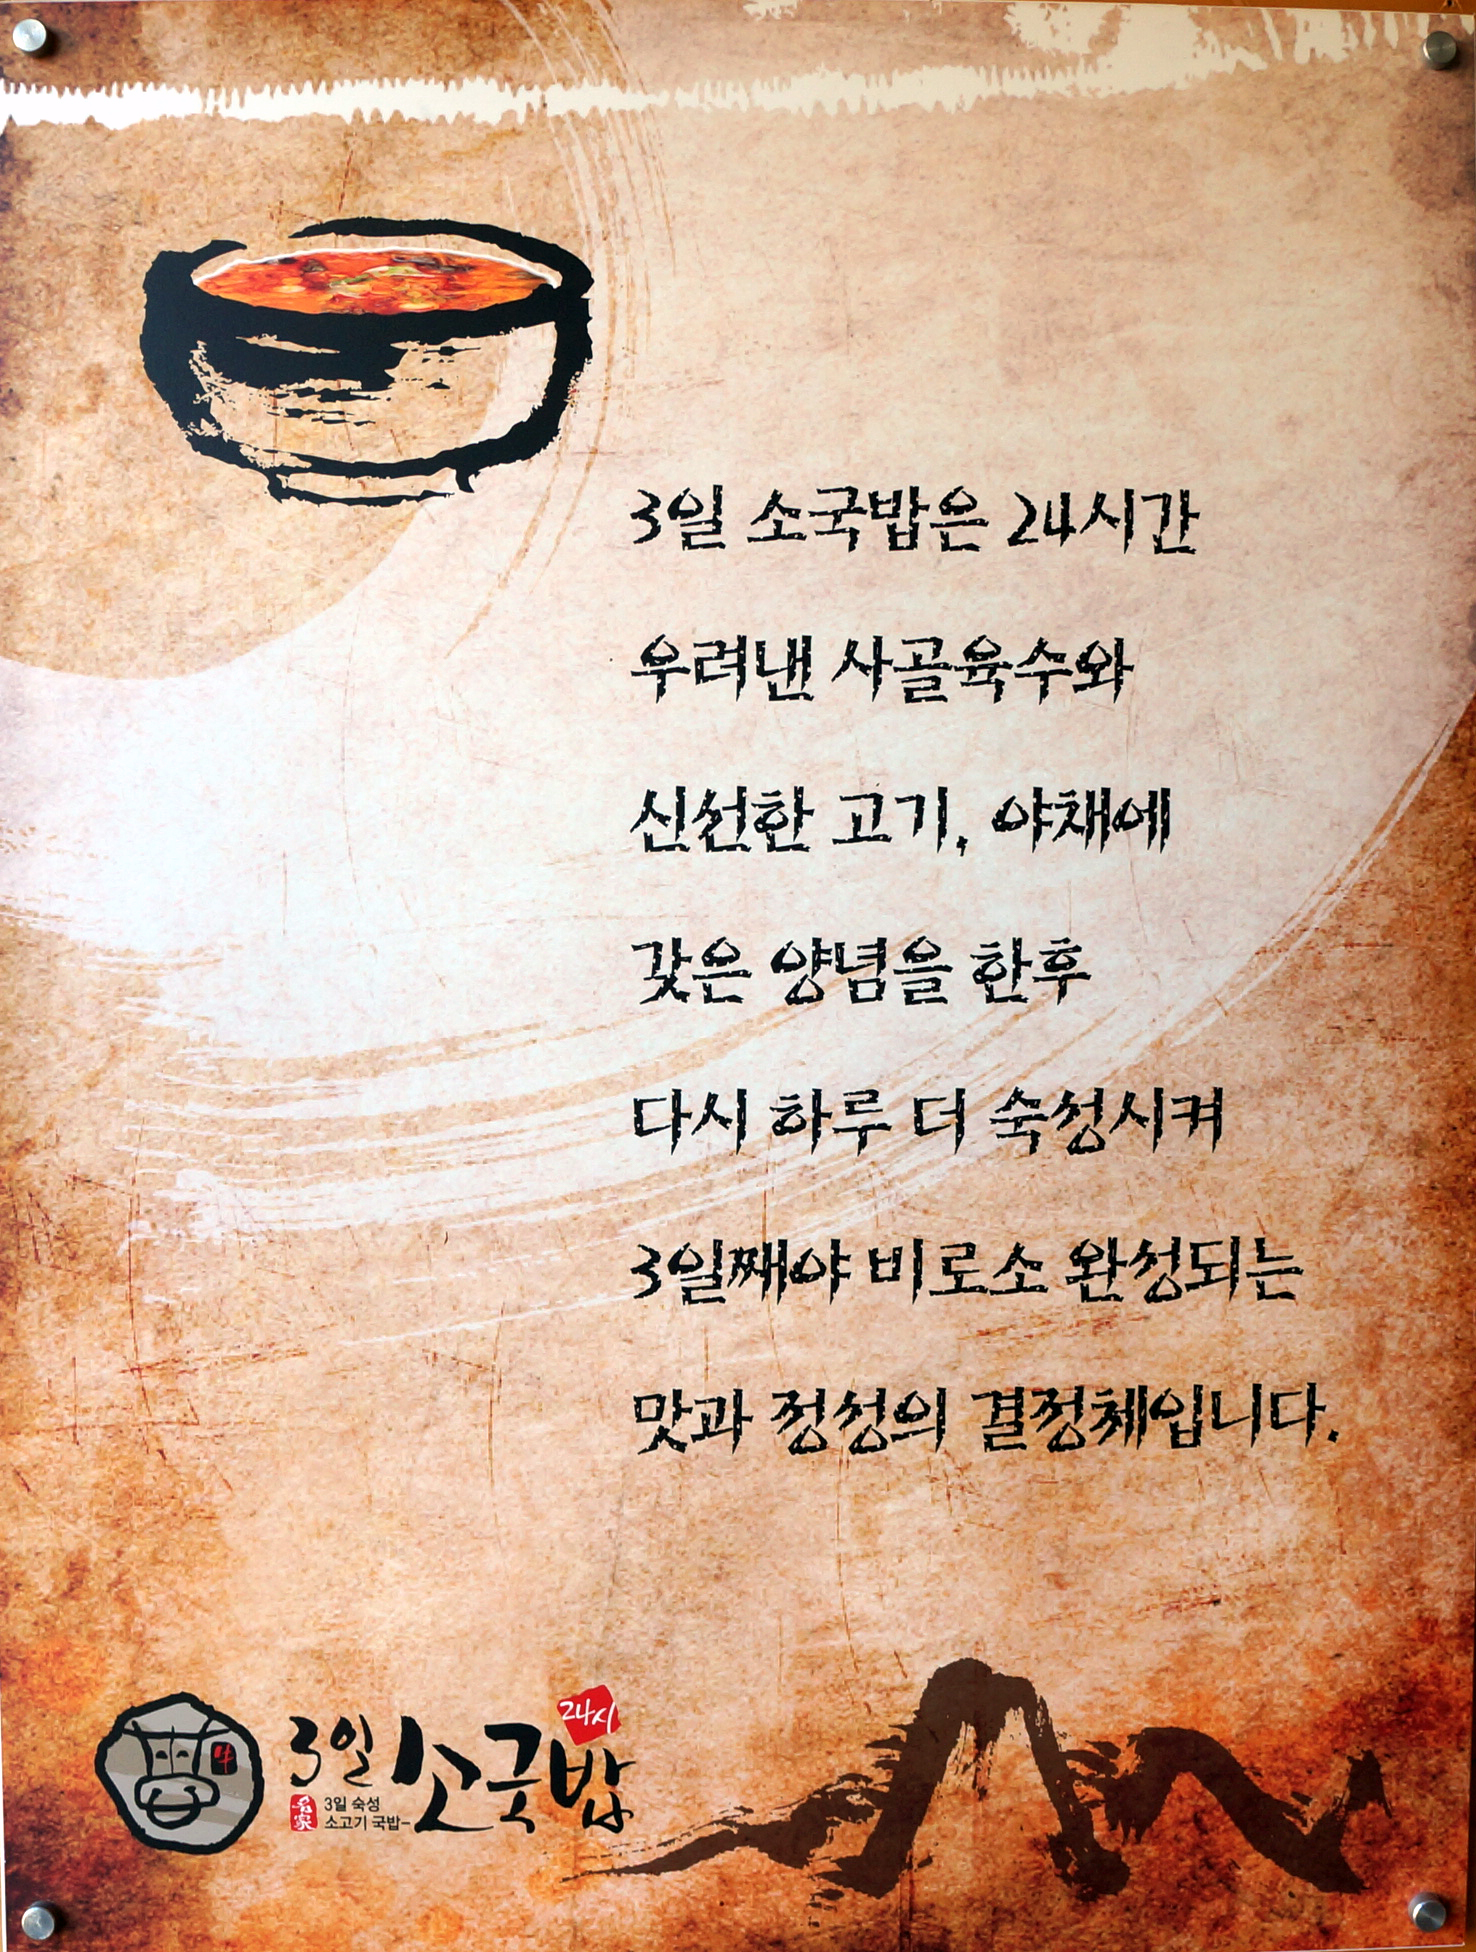 3일 소국밥은 24시간
우려낸 사골육수와
신선한 고기, 야채에
갖은 양념을 한후
다시 하루 더 숙성시켜
3일째야 비로소 완성되는
맛과 정성의 결정체입니다.
24시
3일 소국밥
牛
名家
3일 숙성
소고기 국밥-